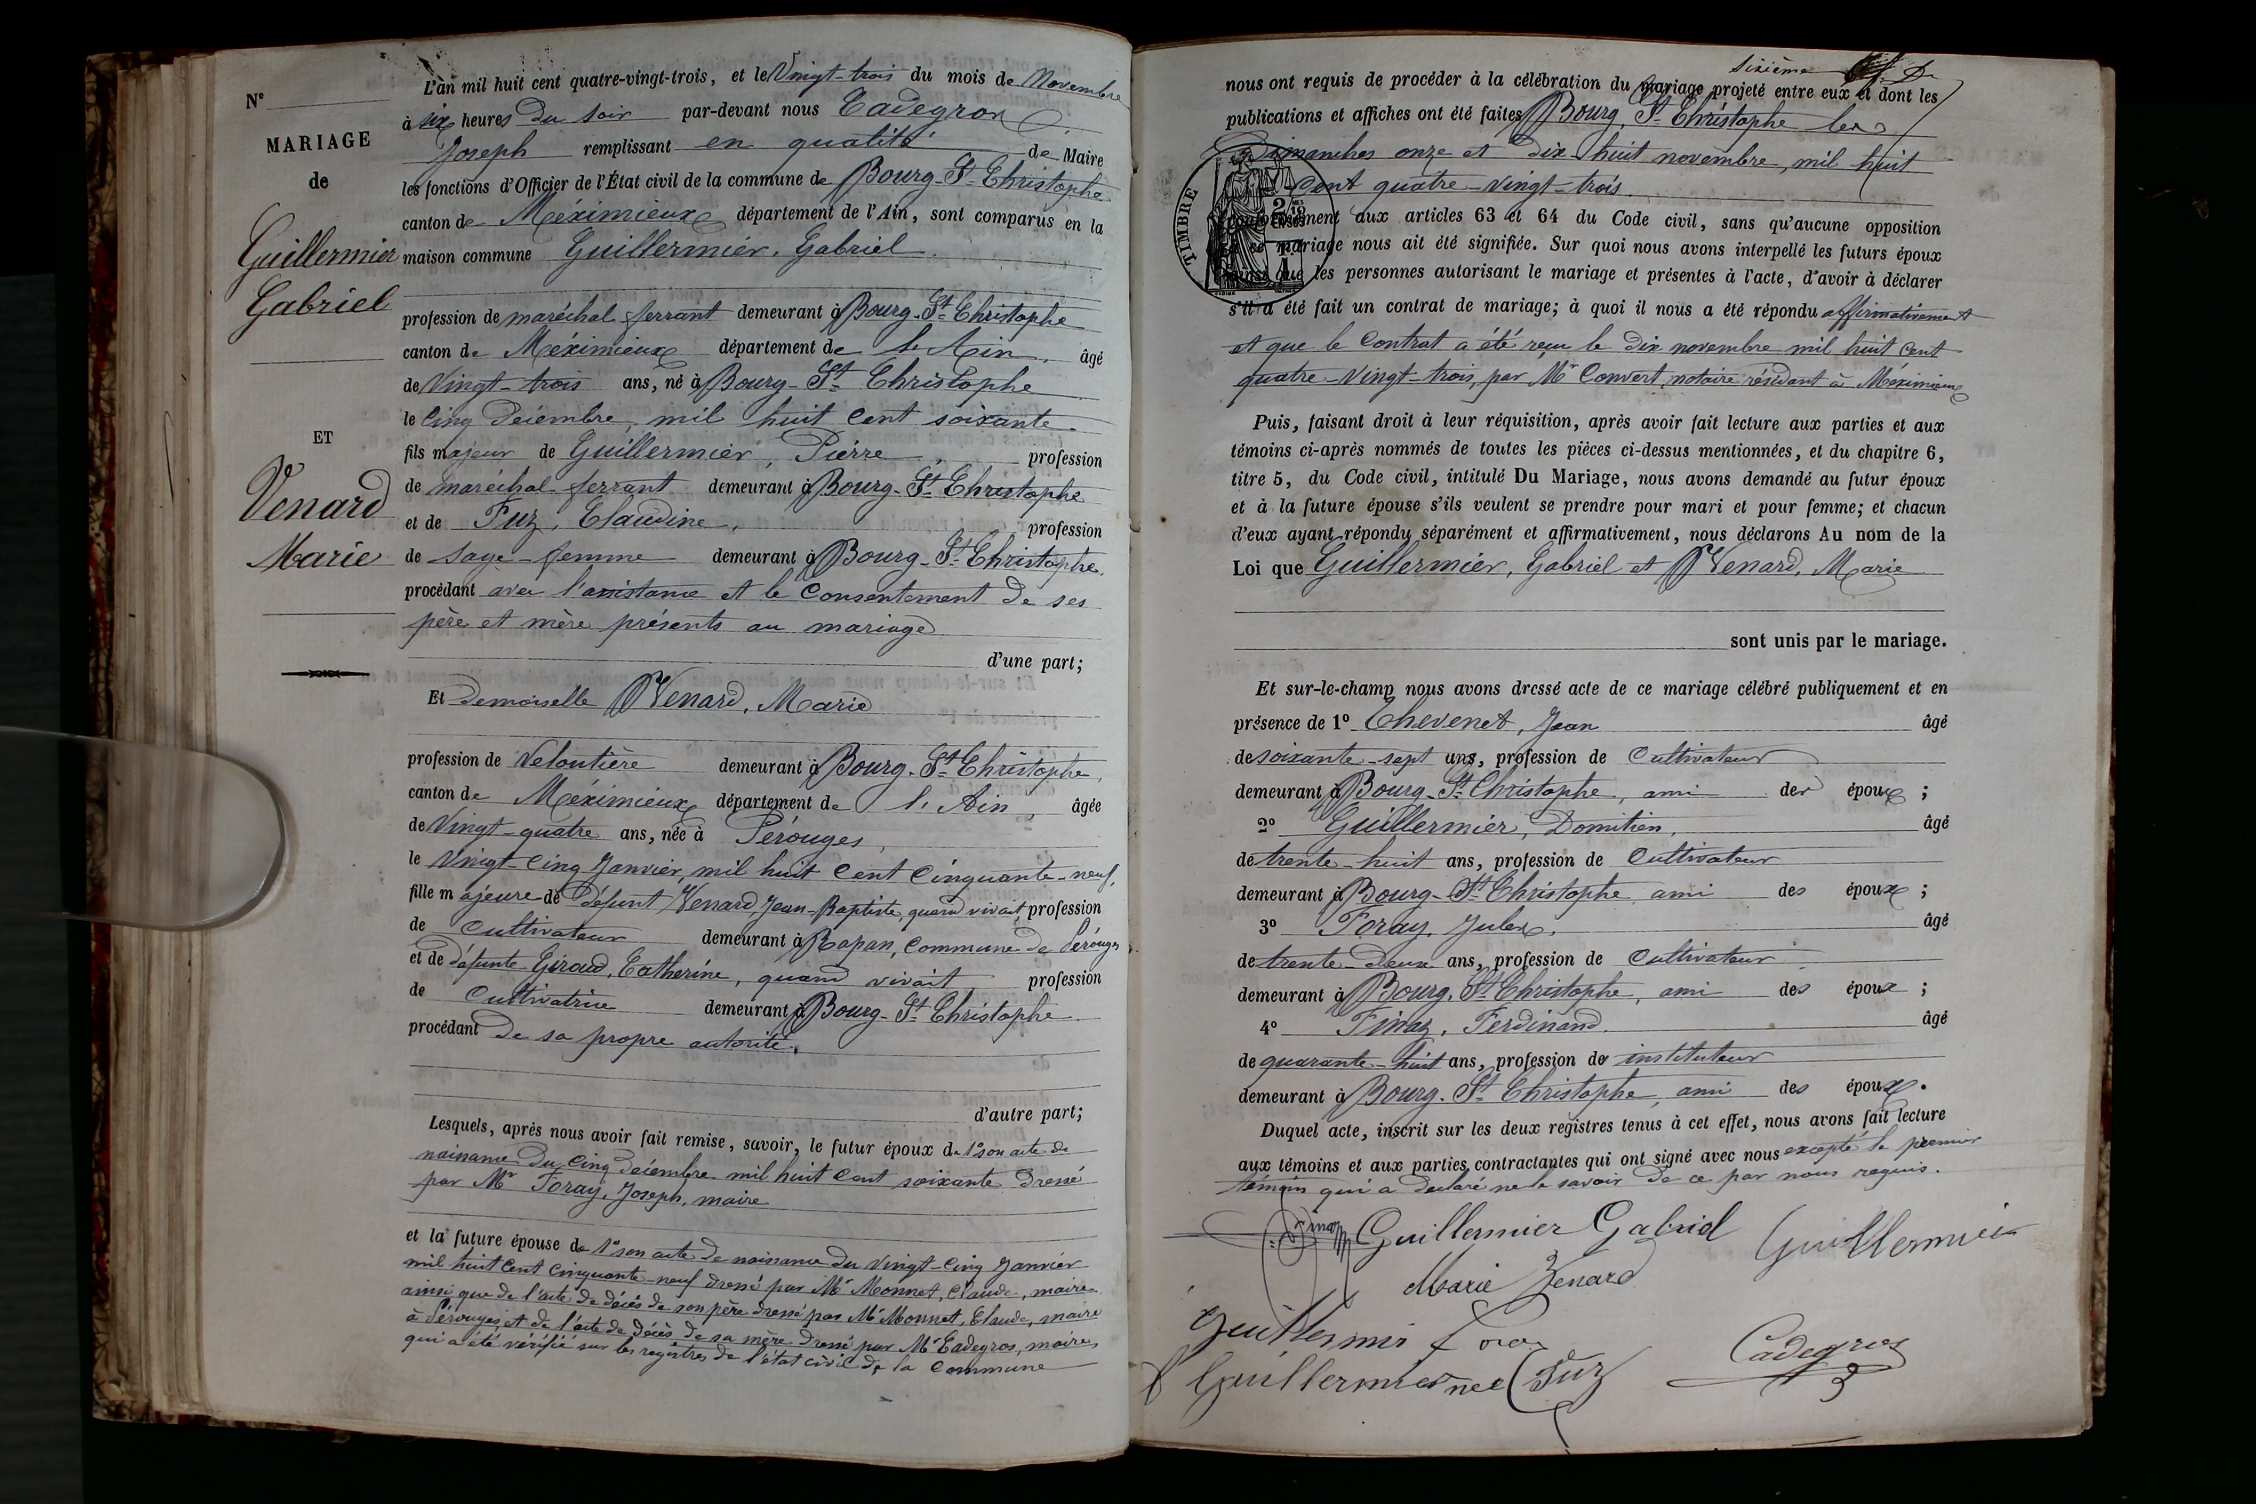 N°
MARIAGE
de
Guillermier
Gabriel
ET
Venard
Marie
L'an mil huit cent quatre-vingt-trois, et le Vingt-trois du mois de Novembre
à six heures du soir par-devant nous Cadegros
Joseph remplissant en qualité de Maire
les fonctions d'Officier de l'État civil de la commune de Bourg-St-Christophe
canton de Méximieux département de l'Ain, sont comparus en la
maison commune Guillermier, Gabriel
profession de maréchal ferrant demeurant à Bourg-St-Christophe
canton de Méximieux département de l'Ain, âgé
de Vingt-trois ans, né à Bourg-St-Christophe
le cinq décembre, mil huit cent soixante
fils majeur de Guillermier, Pierre, profession
de maréchal-ferrant demeurant à Bourg-St-Christophe
et de Fuz, Claudine, profession
de sage-femme demeurant à Bourg-St-Christophe,
procédant avec l'assistance et le consentement de ses
père et mère présents au mariage
d'une part;
Et demoiselle Venard, Marie
profession de Veloutière demeurant à Bourg-St-Christophe,
canton de Méximieux département de l'Ain, âgée
de Vingt-quatre ans, née à Pérouges,
le Vingt-cinq Janvier mil huit cent cinquante-neuf,
fille majeure de défunt Venard, Jean-Baptiste, quand vivait, profession
de cultivateur demeurant à Rapan, commune de Pérouges
et de défunte Giroud, Catherine, quand vivait profession
de cultivatrice demeurant à Bourg-St-Christophe
procédant de sa propre autorité.
d'autre part;
Lesquels, après nous avoir fait remise, savoir, le futur époux de 1° son acte de
naissance du cinq décembre mil huit cent soixante dressé
par Mr Foray, Joseph, maire
et la future épouse de 1° son acte de naissance du vingt-cinq Janvier
mil huit cent cinquante-neuf dressé par Mr Monnet, Claude, maire
ainsi que de l'acte de décès de son père dressé par Mr Monnet, Claude, maire
à Pérouges, et de l'acte de décès de sa mère dressé par Mr Cadegros, maire
qui a été vérifié sur les registres de l'état civil de la commune
sixième
nous ont requis de procéder à la célébration du mariage projeté entre eux et dont les
publications et affiches ont été faites Bourg, St-Christophe les
Dimanches onze et dix-huit novembre, mil huit
cent quatre-vingt-trois.
TIMBRE
conformément aux articles 63 et 64 du Code civil, sans qu'aucune opposition
ce mariage nous ait été signifiée. Sur quoi nous avons interpellé les futurs époux
ainsi que les personnes autorisant le mariage et présentes à l'acte, d'avoir à déclarer
s'il a été fait un contrat de mariage; à quoi il nous a été répondu affirmativement
et que le contrat a été reçu le dix novembre mil huit cent
quatre-vingt-trois, par Mr Convert, notaire résidant à Méximieux
Puis, faisant droit à leur réquisition, après avoir fait lecture aux parties et aux
témoins ci-après nommés de toutes les pièces ci-dessus mentionnées, et du chapitre 6,
titre 5, du Code civil, intitulé Du Mariage, nous avons demandé au futur époux
et à la future épouse s'ils veulent se prendre pour mari et pour femme; et chacun
d'eux ayant répondu séparément et affirmativement, nous déclarons Au nom de la
Loi que Guillermier, Gabriel et Venard, Marie
sont unis par le mariage.
Et sur-le-champ nous avons dressé acte de ce mariage célébré publiquement et en
présence de 1° Thevenet, Jean âgé
de soixante-sept ans, profession de cultivateur
demeurant à Bourg-St-Christophe, ami des époux;
2° Guillermier, Domitien, âgé
de trente-huit ans, profession de cultivateur
demeurant à Bourg-St-Christophe, ami des époux;
3° Foray, Jules, âgé
de trente-deux ans, profession de cultivateur
demeurant à Bourg-St-Christophe, ami des époux;
4° Finaz, Ferdinand âgé
de quarante-huit ans, profession de instituteur
demeurant à Bourg-St-Christophe, ami des époux.
Duquel acte, inscrit sur les deux registres tenus à cet effet, nous avons fait lecture
aux témoins et aux parties contractantes qui ont signé avec nous excepté le premier
témoin qui a déclaré ne le savoir de ce par nous requis.
Guillermier Gabriel Guillermier
Marie Venard
Guillermier Foray
Guillermier nee Fuz
Cadegros